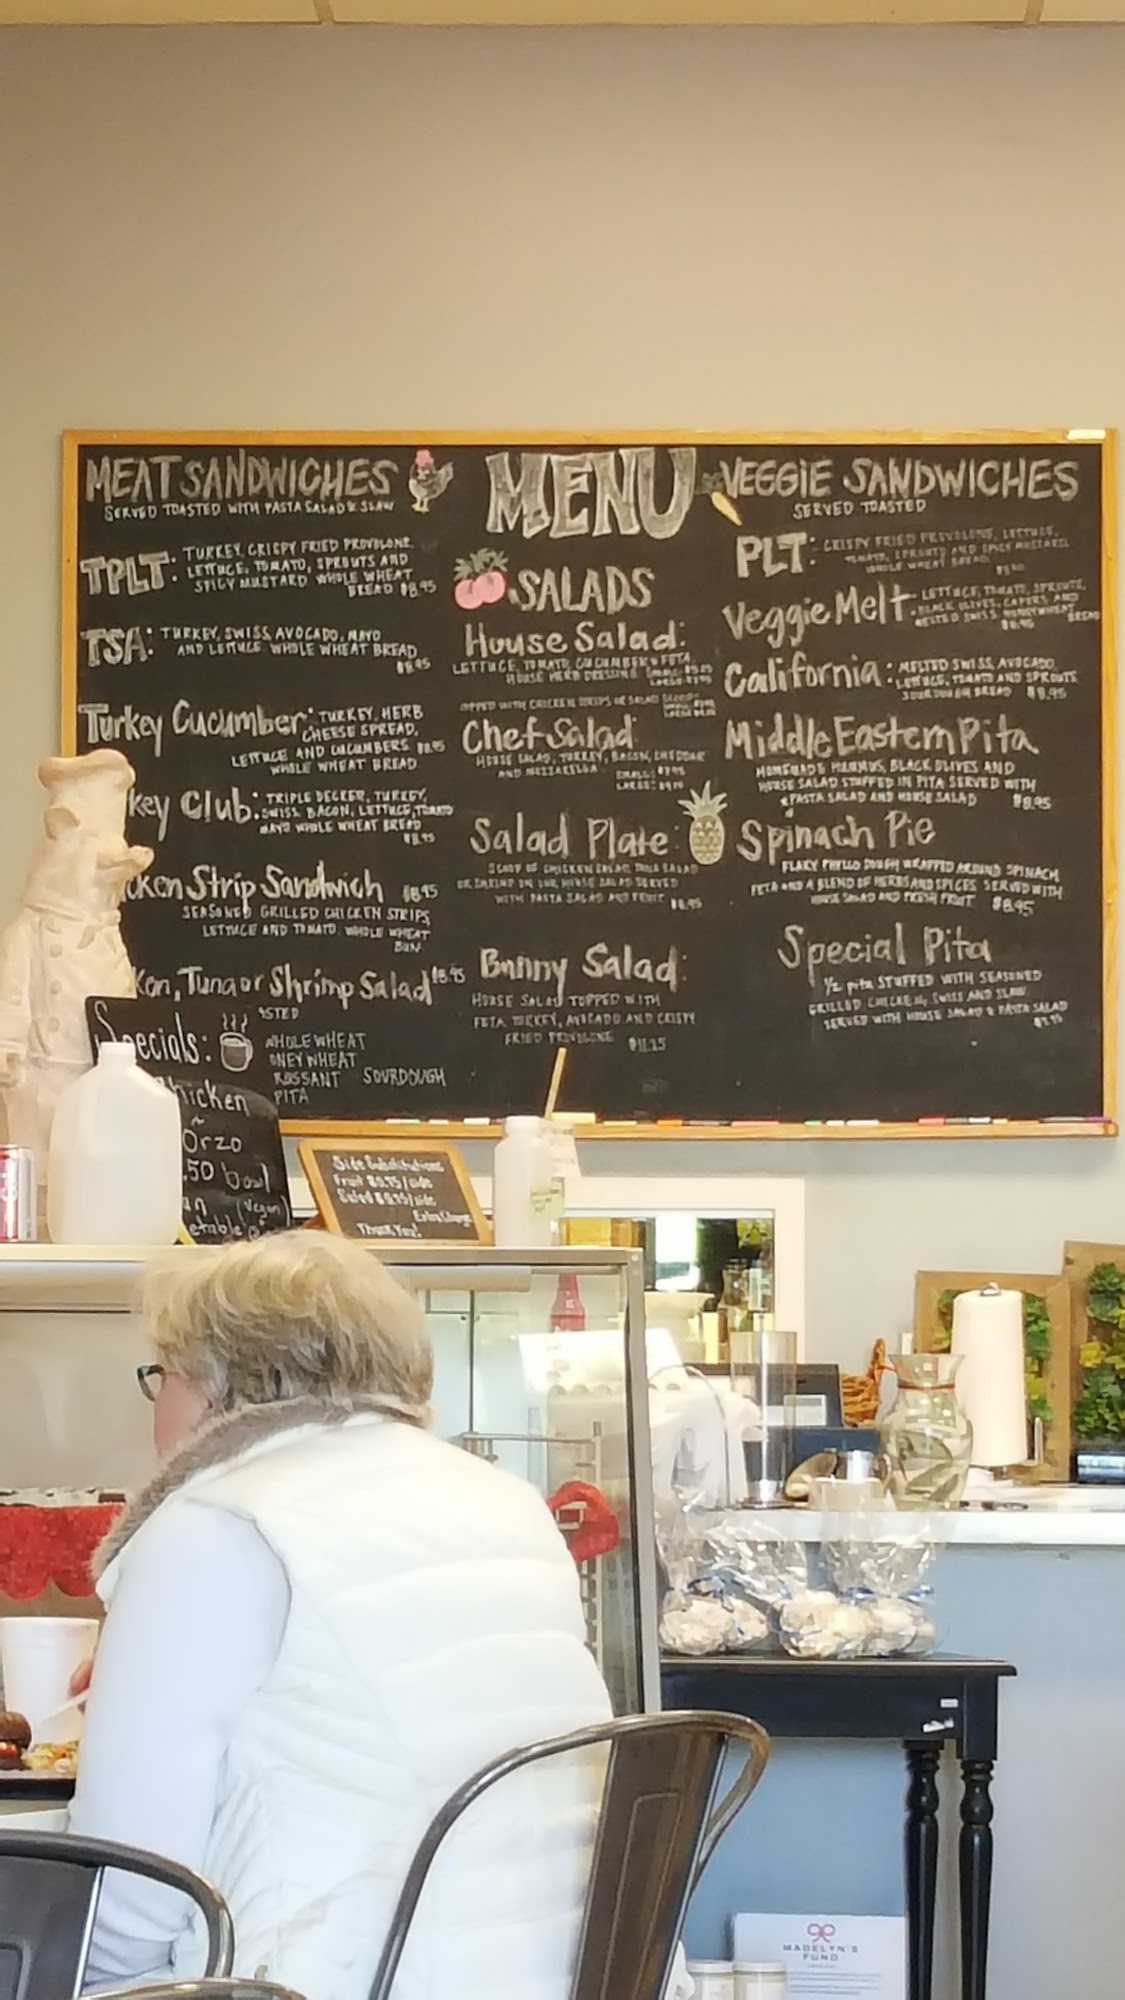 MEAT SANDWICHES
SERVED TOASTED WITH PASTA SALAD & SLAW
TPLT: TURKEY, CRISPY FRIED PROVOLONE,
LETTUCE, TOMATO, SPROUTS AND
SPICY MUSTARD WHOLE WHEAT
BREAD $8.95
TSA: TURKEY, SWISS, AVOCADO, MAYO
AND LETTUCE WHOLE WHEAT BREAD
$8.95
Turkey Cucumber: TURKEY, HERB
CHEESE SPREAD,
LETTUCE AND CUCUMBERS $8.95
WHOLE WHEAT BREAD
key Club: TRIPLE DECKER, TURKEY,
SWISS, BACON, LETTUCE, TOMATO
MAYO WHOLE WHEAT BREAD
$8.95
cken Strip Sandwich $8.95
SEASONED GRILLED CHICKEN STRIPS,
LETTUCE AND TOMATO. WHOLE WHEAT
BUN
ken, Tuna or Shrimp Salad $8.95
ASTED
WHOLE WHEAT
ONEY WHEAT
ROSSANT SOURDOUGH
PITA
MENU
SALADS
House Salad:
LETTUCE, TOMATO, CUCUMBER & FETA
HOUSE HERB DRESSING
TOPPED WITH CHICKEN STRIPS OR SALAD SCOOP:
Chef Salad:
HOUSE SALAD, TURKEY, BACON, CHEDDAR
AND MOZZARELLA
SMALL:
LARGE:
Salad Plate:
SCOOP OF CHICKEN SALAD, TUNA SALAD
OR SHRIMP ON OUR HOUSE SALAD SERVED
WITH PASTA SALAD AND FRUIT $8.95
Bunny Salad:
HOUSE SALAD TOPPED WITH
FETA, TURKEY, AVOCADO AND CRISPY
FRIED PROVOLONE $11.25
VEGGIE SANDWICHES
SERVED TOASTED
PLT: CRISPY FRIED PROVOLONE, LETTUCE,
TOMATO, SPROUTS AND SPICY MUSTARD
WHOLE WHEAT BREAD
Veggie Melt: LETTUCE, TOMATO, SPROUTS,
BLACK OLIVES, CAPERS AND
MELTED SWISS HONEYWHEAT BREAD
$8.95
California: MELTED SWISS, AVOCADO,
LETTUCE, TOMATO AND SPROUTS
SOURDOUGH BREAD $8.95
Middle Eastern Pita
HOMEMADE HUMMUS, BLACK OLIVES AND
HOUSE SALAD STUFFED IN PITA SERVED WITH
PASTA SALAD AND HOUSE SALAD $8.95
Spinach Pie
FLAKY PHYLLO DOUGH WRAPPED AROUND SPINACH
FETA AND A BLEND OF HERBS AND SPICES SERVED WITH
HOUSE SALAD AND FRESH FRUIT $8.95
Special Pita
1/2 pita STUFFED WITH SEASONED
GRILLED CHICKEN, SWISS AND SLAW
SERVED WITH HOUSE SALAD & PASTA SALAD
Specials:
hicken
~
Orzo
.50 bowl
an (Vegan)
etable
Side Substitutions
Fruit $0.75/side
Salad $0.75/side
Extra Charge
Thank You!
MADELYN'S
FUND